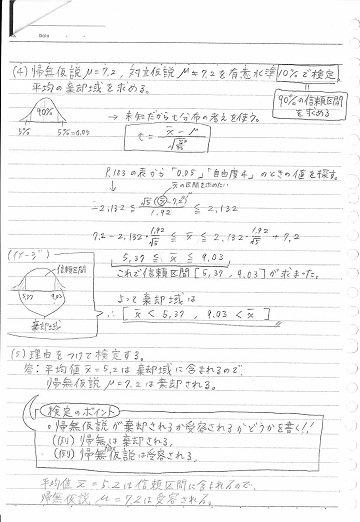 Date
(4) 帰無仮説 μ=7.2, 対立仮説 μ≠7.2を有意水準10%で検定。
平均の棄却域を求める。
90%の信頼区間
を求める
90%
5% 5%=0.05
→ 未知だからt分布の考えを使う。
t = x̄ - μ
P.183の表から「0.05」「自由度4」のときの値を探す。
x̄の区間を求めたい
-2.132 ≦ √5(x̄-7.2) / 1.92 ≦ 2.132
7.2 - 2.132・1.92/√5 ≦ x̄ ≦ 2.132・1.92/√5 + 7.2
5.37 ≦ x̄ ≦ 9.03
これで信頼区間[5.37, 9.03]が求まった。
(イメージ)
信頼区間
5.37 9.03
棄却域
よって棄却域は
∴ [ x̄ < 5.37, 9.03 < x̄ ]
(5) 理由をつけて検定する。
答: 平均値 x̄=5.2は棄却域に含まれるので、
帰無仮説 μ=7.2は棄却される。
検定のポイント
○帰無仮説が棄却されるか受容されるかどうかを書く!!
(例) 帰無は棄却される。
(例) 帰無仮説は受容される。
平均値 x̄=5.2は信頼区間に含まれるので、
帰無仮説 μ=7.2は受容される。